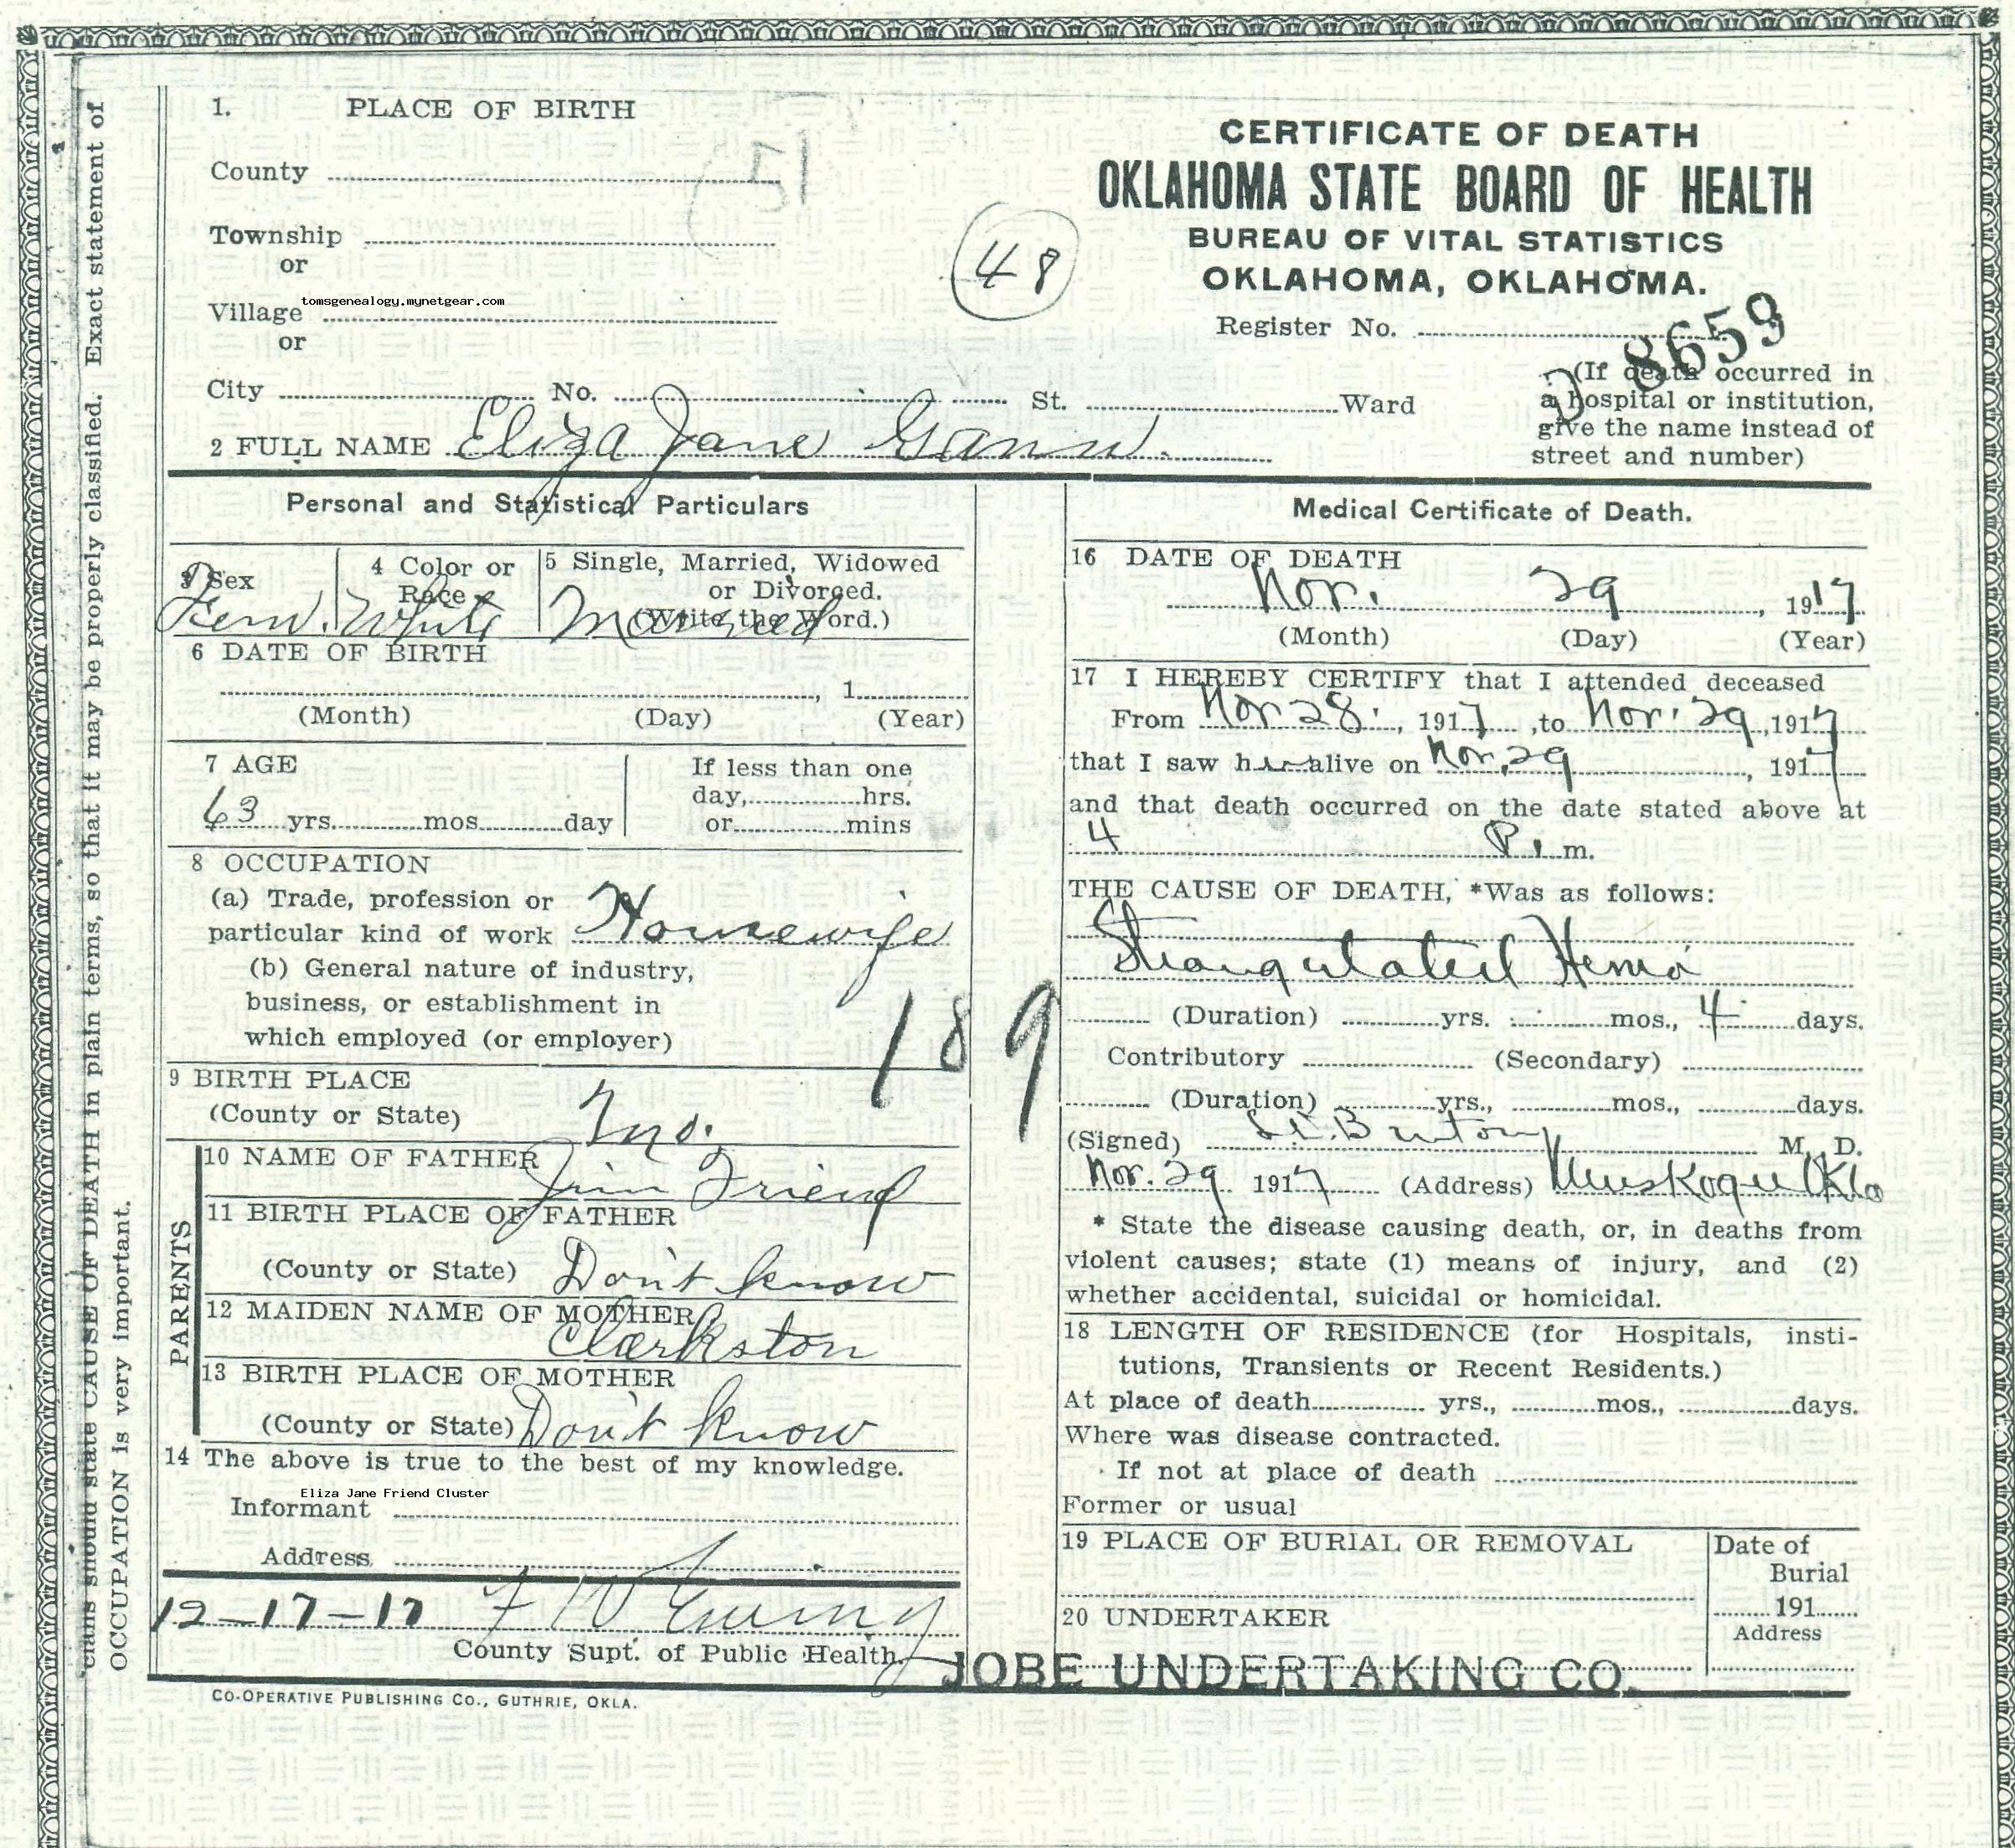 1. PLACE OF BIRTH
County
Township
or
Village
tomsgenealogy.mynetgear.com
or
City No. St. Ward
2 FULL NAME Eliza Jane Gann
51
48
CERTIFICATE OF DEATH
OKLAHOMA STATE BOARD OF HEALTH
BUREAU OF VITAL STATISTICS
OKLAHOMA, OKLAHOMA.
Register No.
D 8659
(If death occurred in
a hospital or institution,
give the name instead of
street and number)
Personal and Statistical Particulars
3 Sex
Fem.
4 Color or
Race
White
5 Single, Married, Widowed
or Divorced.
(Write the Word.)
Married
6 DATE OF BIRTH
, 1
(Month) (Day) (Year)
7 AGE
63 yrs. mos. day
If less than one
day, hrs.
or mins
8 OCCUPATION
(a) Trade, profession or
particular kind of work Housewife
(b) General nature of industry,
business, or establishment in
which employed (or employer)
189
9 BIRTH PLACE
(County or State)
PARENTS
10 NAME OF FATHER
Jim Friend
11 BIRTH PLACE OF FATHER
(County or State) Don't know
12 MAIDEN NAME OF MOTHER
Clarkston
13 BIRTH PLACE OF MOTHER
(County or State) Don't know
14 The above is true to the best of my knowledge.
Eliza Jane Friend Cluster
Informant
Address
12-17-17 F W Ewing
County Supt. of Public Health.
CO-OPERATIVE PUBLISHING CO., GUTHRIE, OKLA.
Medical Certificate of Death.
16 DATE OF DEATH
Nov. 29, 1917
(Month) (Day) (Year)
17 I HEREBY CERTIFY that I attended deceased
From Nov 28, 1917, to Nov. 29, 1917
that I saw her alive on Nov. 29, 1917
and that death occurred on the date stated above at
4 P. m.
THE CAUSE OF DEATH, *Was as follows:
Strangulated Hernia
(Duration) yrs. mos., 4 days.
Contributory (Secondary)
(Duration) yrs., mos., days.
(Signed) M. D.
Nov. 29 1917 (Address) Muskogee Okla
* State the disease causing death, or, in deaths from
violent causes; state (1) means of injury, and (2)
whether accidental, suicidal or homicidal.
18 LENGTH OF RESIDENCE (for Hospitals, insti-
tutions, Transients or Recent Residents.)
At place of death yrs., mos., days.
Where was disease contracted.
If not at place of death
Former or usual
19 PLACE OF BURIAL OR REMOVAL
Date of
Burial
191
20 UNDERTAKER
Address
JOBE UNDERTAKING CO.
cians should state CAUSE OF DEATH in plain terms, so that it may be properly classified. Exact statement of
OCCUPATION is very important.